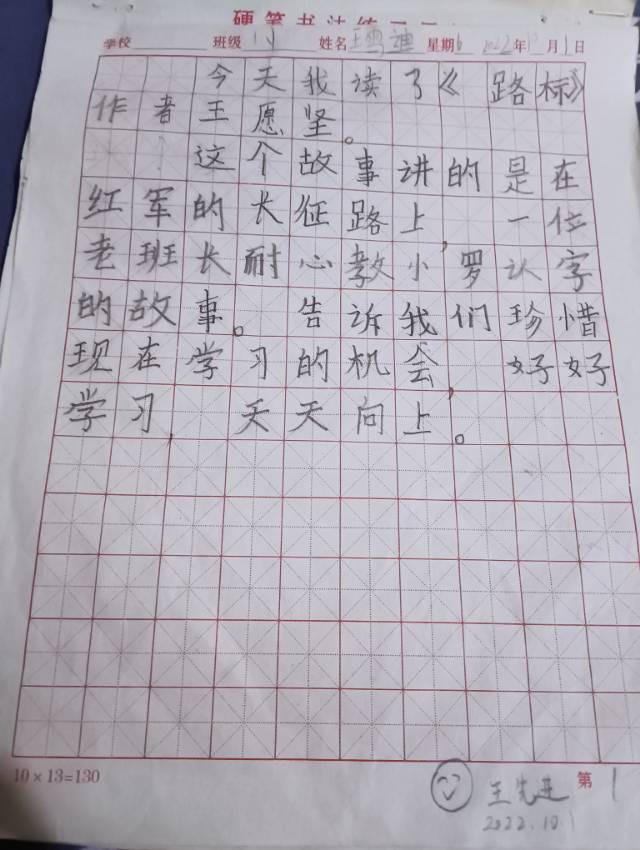 硬笔书法练
学校 班级 姓名 王 迪 星期6 2022年10月1日
今天我读了《路标》
作者王愿坚。
这个故事讲的是在
红军的长征路上,一位
老班长耐心教小罗认字
的故事。告诉我们珍惜
现在学习的机会,好好
学习,天天向上。
10×13=130
王先进 第1
2022.10.1